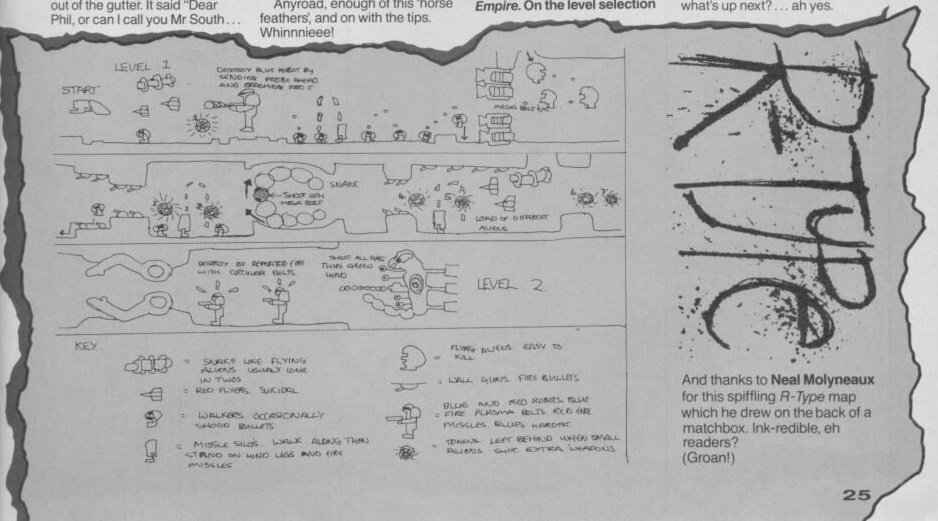 out of the gutter. It said "Dear
Phil, or can I call you Mr South...
Anyroad, enough of this 'horse
feathers', and on with the tips.
Whinnnieee!
Empire. On the level selection
what's up next?... ah yes.
LEVEL 1
START
DESTROY BLUE ROBOT BY
SENDING PROBE AHEAD
AND
INTO IT
MEGA BOLT
1
SNAKE
SHOOT WITH
MEGA BOLT
2
3
4
5
6
7
LOAD OF DIFFERENT
ALIENS
DESTROY BY REPEATED FIRE
WITH CIRCULAR BOLTS.
SHOOT ALL
THEN GREEN
HEAD
LEVEL 2
KEY
= SNAKE LIKE FLYING
ALIENS USUALLY COME
IN TWOS
= RED FLYERS. SUICIDAL
= WALKERS. OCCASIONALLY
SHOOD BULLETS
= MISSLE SILOS. WALK ALONG THEN
STAND ON HIND LEGS AND FIRE
MISSILES
= FLYING ALIENS. EASY TO
KILL
= WALL GUNS. FIRE BULLETS
BLUE AND RED ROBOTS. BLUE
= FIRE PLASMA BOLTS RED FIRE
MISSILES. BLUES HARDEST.
= TOKENS. LEFT BEHIND WHEN SMALL
ALIENS SHOT. EXTRA WEAPONS
R-Type
And thanks to Neal Molyneaux
for this spiffling R-Type map
which he drew on the back of a
matchbox. Ink-redible, eh
readers?
(Groan!)
25